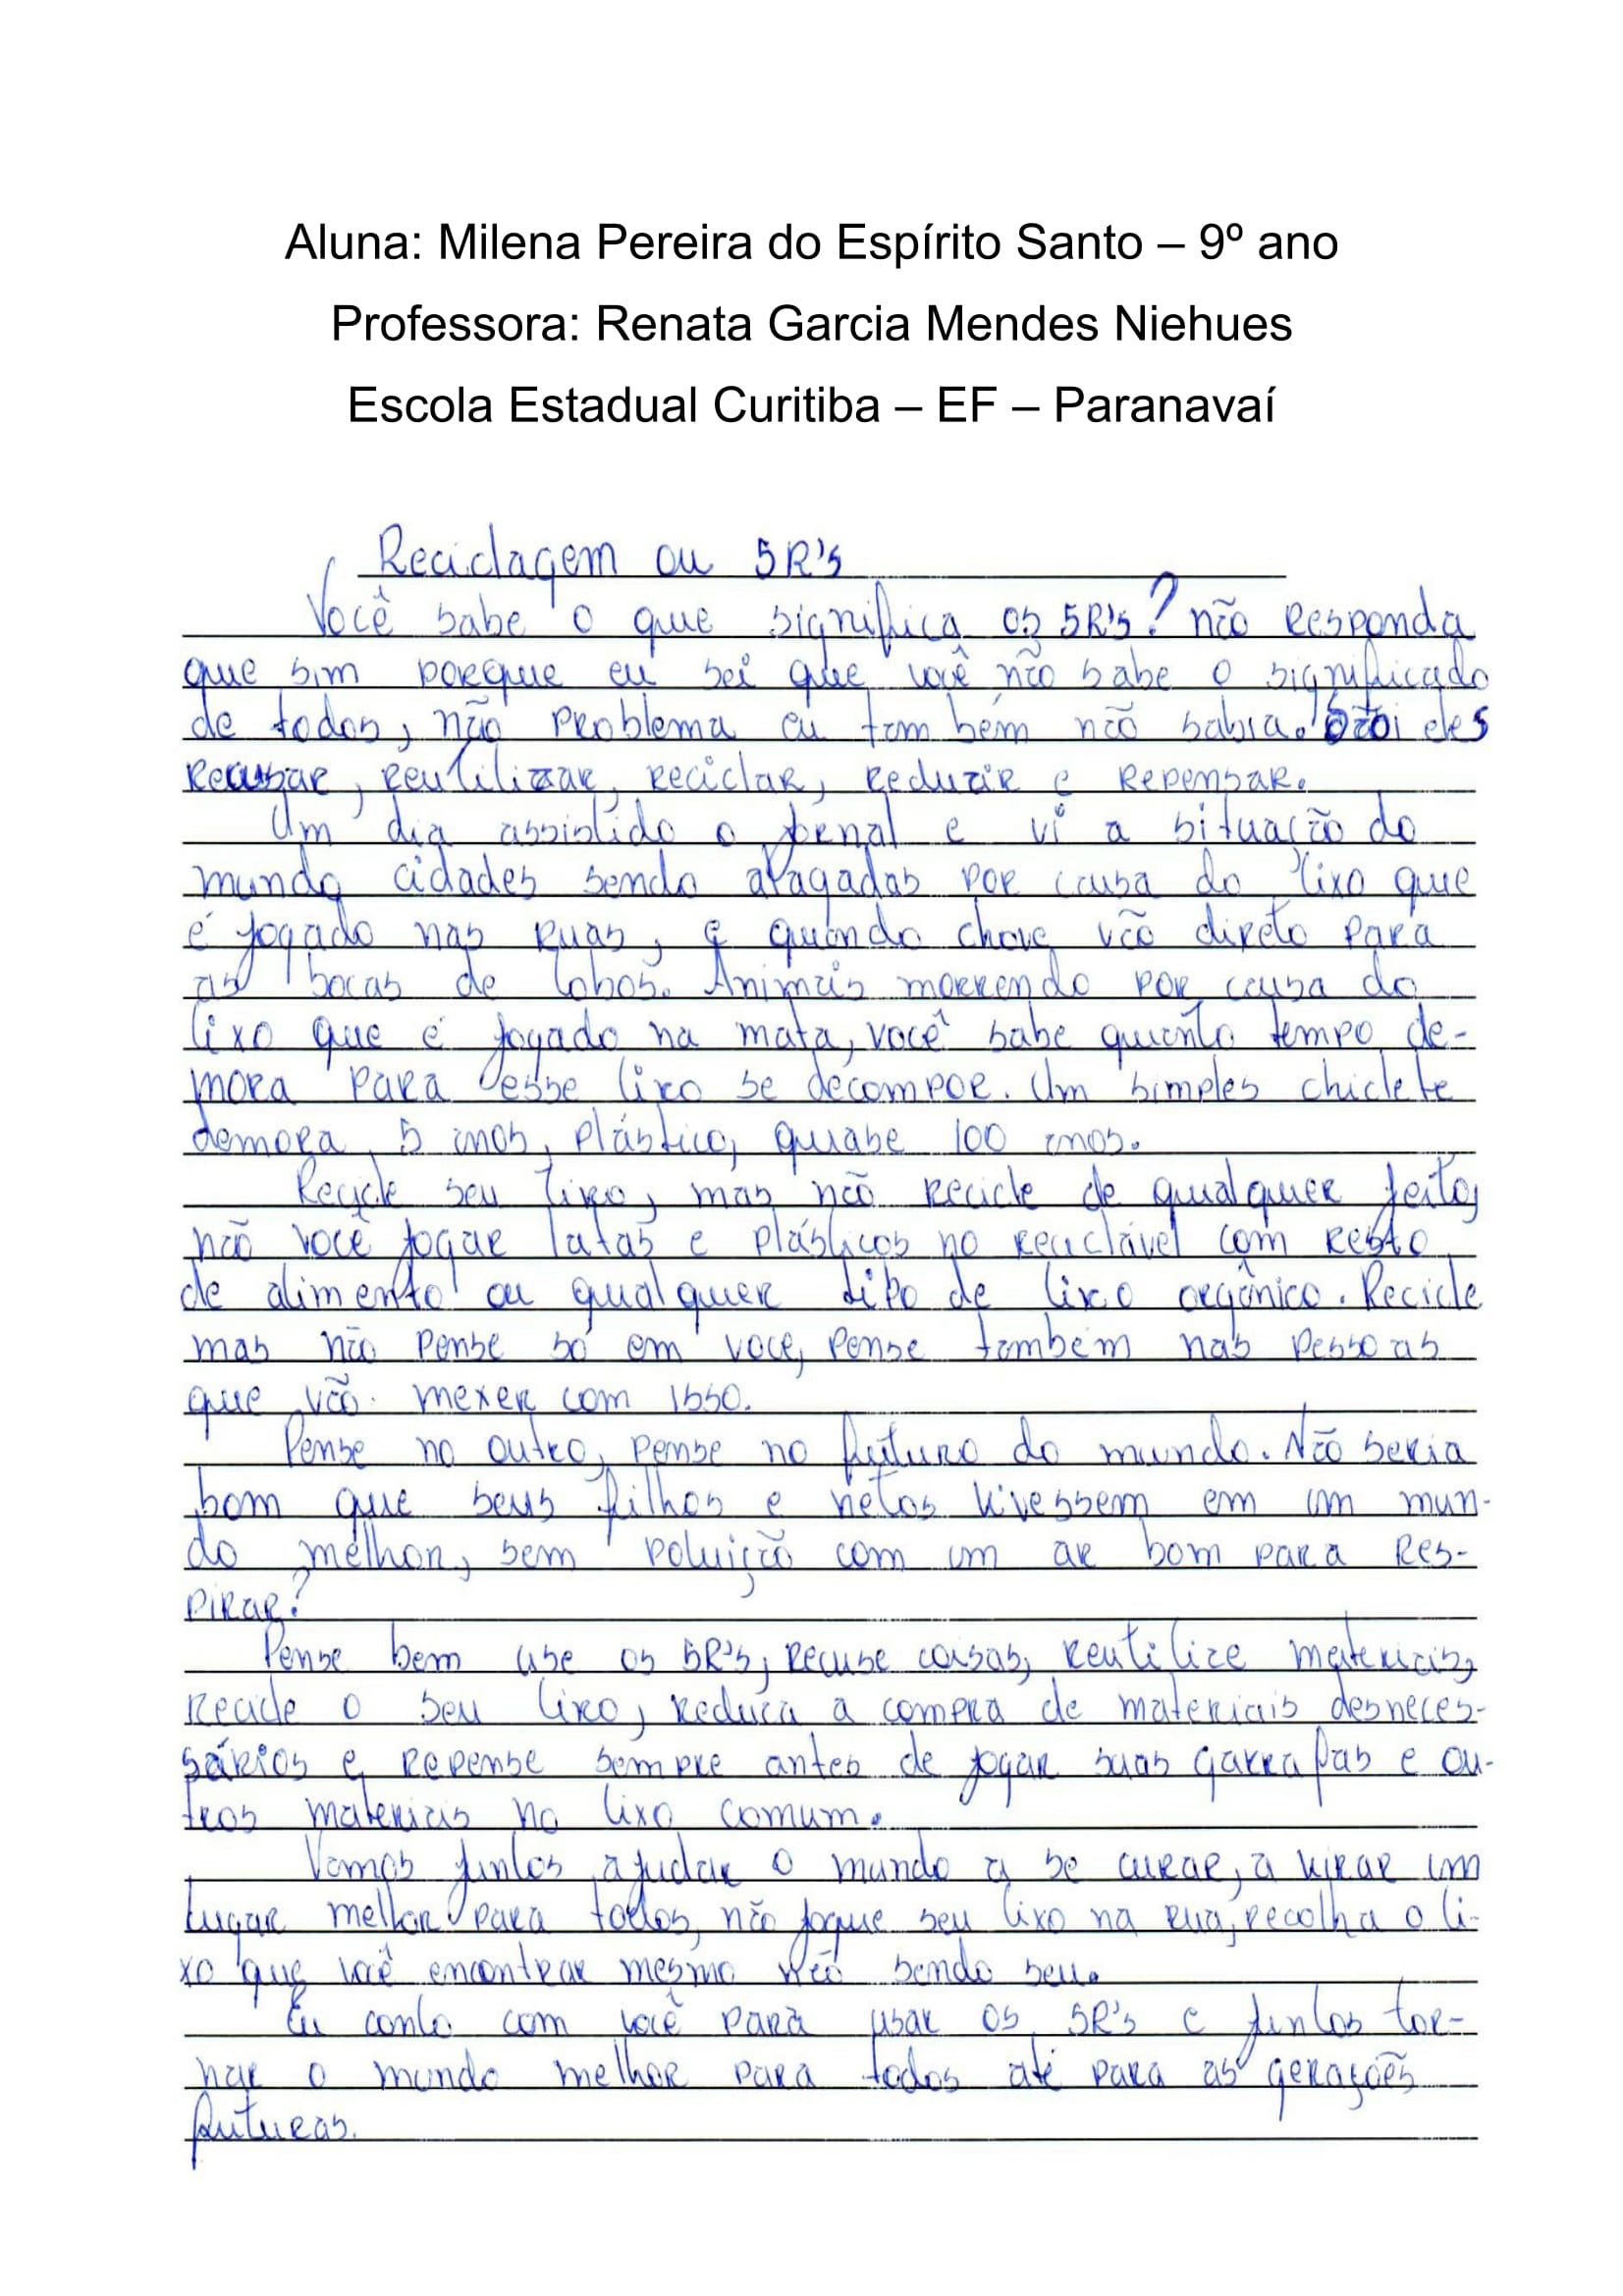 Aluna: Milena Pereira do Espírito Santo – 9º ano
Professora: Renata Garcia Mendes Niehues
Escola Estadual Curitiba – EF – Paranavaí
Reciclagem ou 5R's
Você sabe o que significa os 5R's? não responda
que sim porque eu sei que você não sabe o significado
de todos, não problema eu também não sabia. eles
Recusar, reutilizar, reciclar, reduzir e repensar.
Um dia assistido o jornal e vi a situação do
mundo cidades sendo alagadas por causa do lixo que
é jogado nas ruas, e quando chove vão direto para
as bocas de lobos. Animais morrendo por causa do
lixo que é jogado na mata, você sabe quanto tempo de-
mora para esse lixo se decompor. Um simples chiclete
demora 5 anos, plástico, quase 100 anos.
Recicle seu lixo, mas não recicle de qualquer jeito,
não você jogar latas e plásticos no reciclável com resto
de alimento ou qualquer tipo de lixo orgânico. Recicle
mas não pense só em você, pense também nas pessoas
que vão mexer com isso.
Pense no outro, pense no futuro do mundo. Não seria
bom que seus filhos e netos vivessem em um mun-
do melhor, sem poluição com um ar bom para res-
pirar?
Pense bem use os 5R's, recuse coisas, reutilize materiais,
recicle o seu lixo, reduza a compra de materiais desneces-
sários e repense sempre antes de jogar suas garrafas e ou-
tros materiais no lixo comum.
Vamos juntos ajudar o mundo a se curar, a virar um
lugar melhor para todos, não jogue seu lixo na rua, recolha o li-
xo que você encontrar mesmo não sendo seu.
Eu conto com você para usar os 5R's e juntos tor-
nar o mundo melhor para todos até para as gerações
futuras.